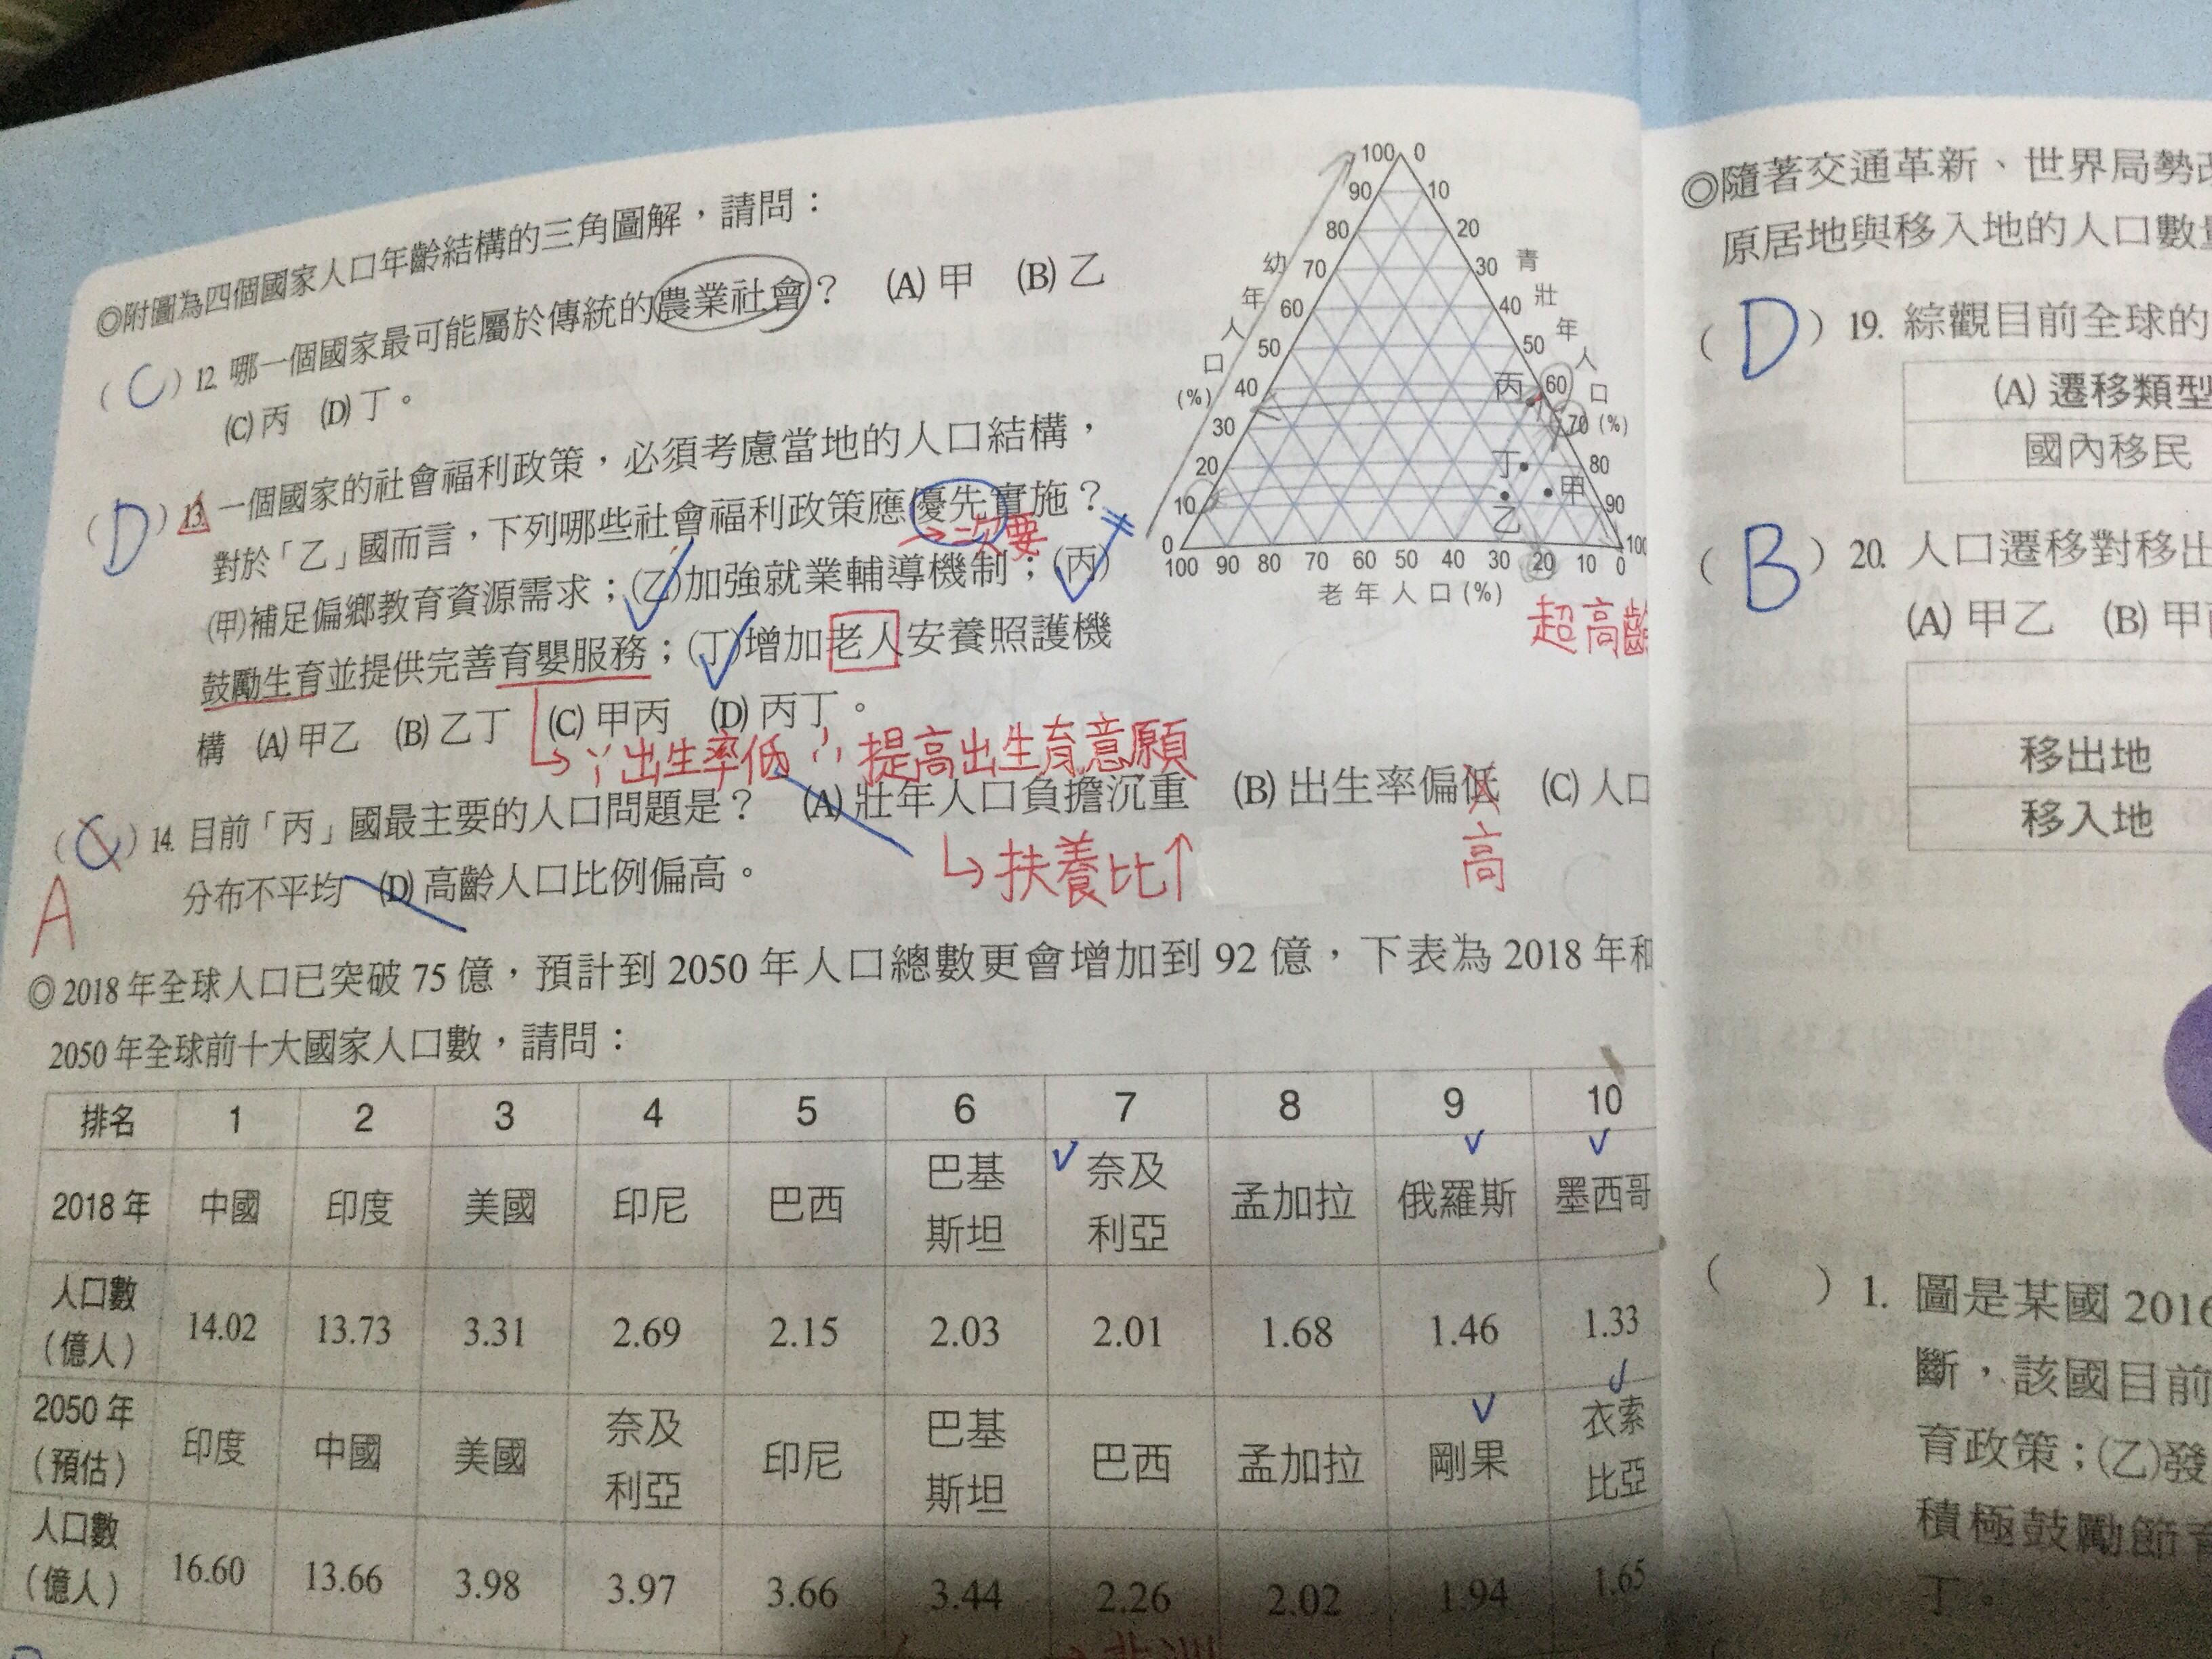 ◎附圖為四個國家人口年齡結構的三角圖解，請問：
( C ) 12. 哪一個國家最可能屬於傳統的農業社會？ (A) 甲 (B) 乙
(C) 丙 (D) 丁。
( D ) 13. 一個國家的社會福利政策，必須考慮當地的人口結構，
對於「乙」國而言，下列哪些社會福利政策應優先實施？
→次要
(甲)補足偏鄉教育資源需求；(乙)加強就業輔導機制；(丙)
鼓勵生育並提供完善育嬰服務；(丁)增加老人安養照護機
構 (A) 甲乙 (B) 乙丁 (C) 甲丙 (D) 丙丁。
出生率低 提高出生育意願
( C ) 14. 目前「丙」國最主要的人口問題是？ (A) 壯年人口負擔沉重 (B) 出生率偏低 (C) 人口
A
扶養比↑
高
分布不平均 (D) 高齡人口比例偏高。
100 0
90 10
80 20
70 30
60 40
50 50
40 60
30 70 (%)
20 80
10 90
0 100
幼年人口(%)
青壯年人口
丙
丁
甲
乙
100 90 80 70 60 50 40 30 20 10 0
老年人口(%)
超高齡
◎2018 年全球人口已突破 75 億，預計到 2050 年人口總數更會增加到 92 億，下表為 2018 年和
2050 年全球前十大國家人口數，請問：
排名 1 2 3 4 5 6 7 8 9 10
2018 年 中國 印度 美國 印尼 巴西 巴基斯坦 奈及利亞 孟加拉 俄羅斯 墨西哥
人口數（億人） 14.02 13.73 3.31 2.69 2.15 2.03 2.01 1.68 1.46 1.33
2050 年（預估） 印度 中國 美國 奈及利亞 印尼 巴基斯坦 巴西 孟加拉 剛果 衣索比亞
人口數（億人） 16.60 13.66 3.98 3.97 3.66 3.44 2.26 2.02 1.94 1.65
◎隨著交通革新、世界局勢
原居地與移入地的人口數
( D ) 19. 綜觀目前全球的
(A) 遷移類型
國內移民
( B ) 20. 人口遷移對移出
(A) 甲乙 (B) 甲
移出地
移入地
( ) 1. 圖是某國 2016
斷，該國目前
育政策；(乙)發
積極鼓勵節育
丁。